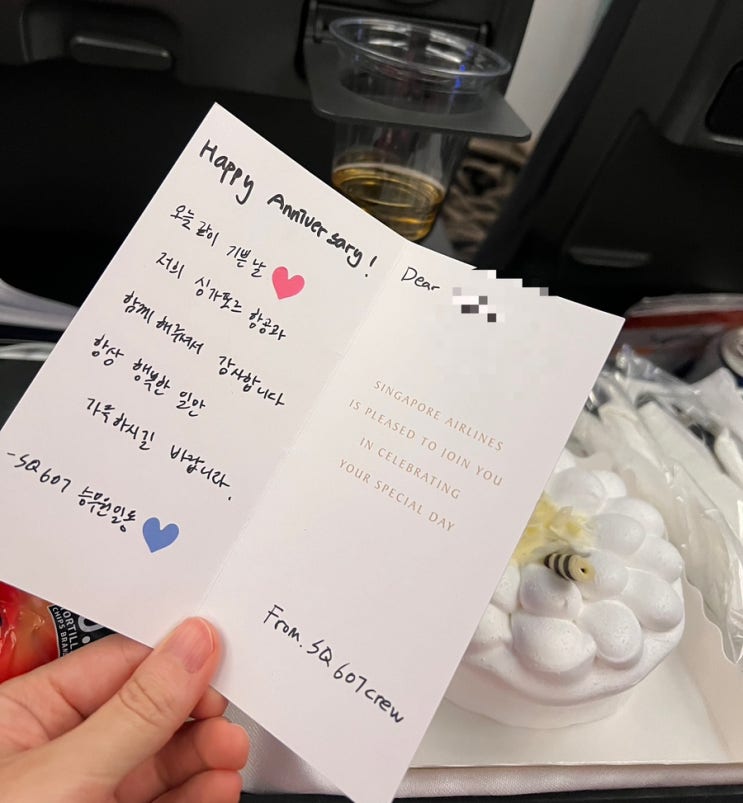 Happy Anniversary!
오늘 같이 기쁜 날
저희 싱가포르 항공과
함께 해주셔서 감사합니다
항상 행복한 일만
가득하시길 바랍니다.
-SQ607 승무원일동
Dear
SINGAPORE AIRLINES
IS PLEASED TO JOIN YOU
IN CELEBRATING
YOUR SPECIAL DAY
From. SQ607 crew
CHIPS BRAN